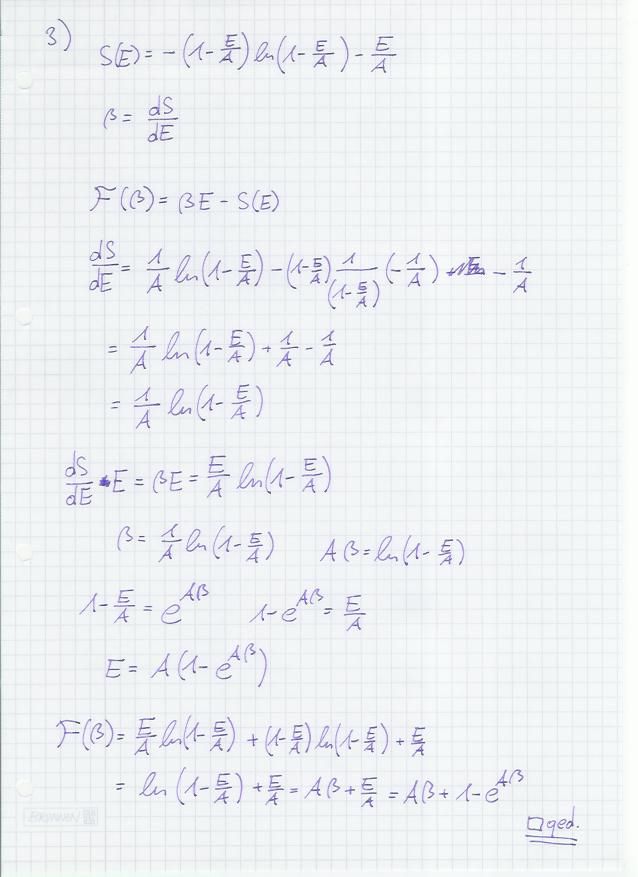 3)
S(E) = -(1-E/A) ln(1-E/A) - E/A
β = dS/dE
F(β) = βE - S(E)
dS/dE = 1/A ln(1-E/A) - (1-E/A) 1/(1-E/A) (-1/A) - 1/A
= 1/A ln(1-E/A) + 1/A - 1/A
= 1/A ln(1-E/A)
dS/dE · E = βE = E/A ln(1-E/A)
β = 1/A ln(1-E/A) Aβ = ln(1-E/A)
1-E/A = e^{Aβ} 1-e^{Aβ} = E/A
E = A(1-e^{Aβ})
F(β) = E/A ln(1-E/A) + (1-E/A) ln(1-E/A) + E/A
= ln(1-E/A) + E/A = Aβ + E/A = Aβ + 1 - e^{Aβ}
□ qed.